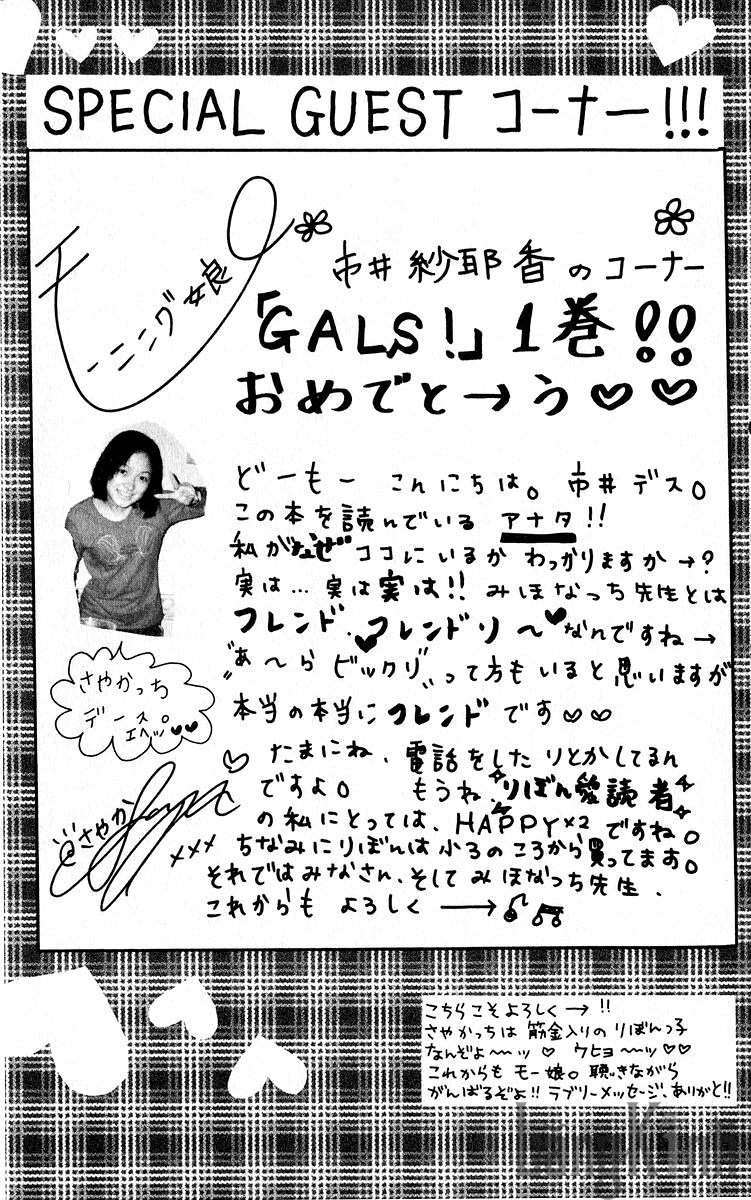 SPECIAL GUEST コーナー!!!
モーニング娘
市井紗耶香のコーナー
「GALS!」1巻!!
おめでと→う♡♡
どーもー こんにちは。市井デス。
この本を読んでいる アナタ!!
私がなぜココにいるか わっかりますか→?
実は…実は実は!! みほなっち先生とは
フレンド、フレンドリ〜♥なんですね→
"あ〜らビックリ"って方もいると思いますが
本当の本当にフレンドです♡♡
さやかっち
デース。
エヘッ♡♡
♡たまにね、電話をしたりとかしてるん
ですよ。 もうね、りぼん愛読者
の私にとっては、HAPPY×2ですね。
ちなみにりぼんは小3のころから買ってます。
それではみなさん、そしてみほなっち先生、
これからも よろしく→♪♫
さやか
×××
こちらこそよろしく→!!
さやかっちは 筋金入りの りぼんっ子
なんぞよ〜ッ♡ ウヒョ〜ッ♡♡
これからも モー娘。聴きながら
がんばるぞよ!! ラブリーメッセージ、ありがと!!